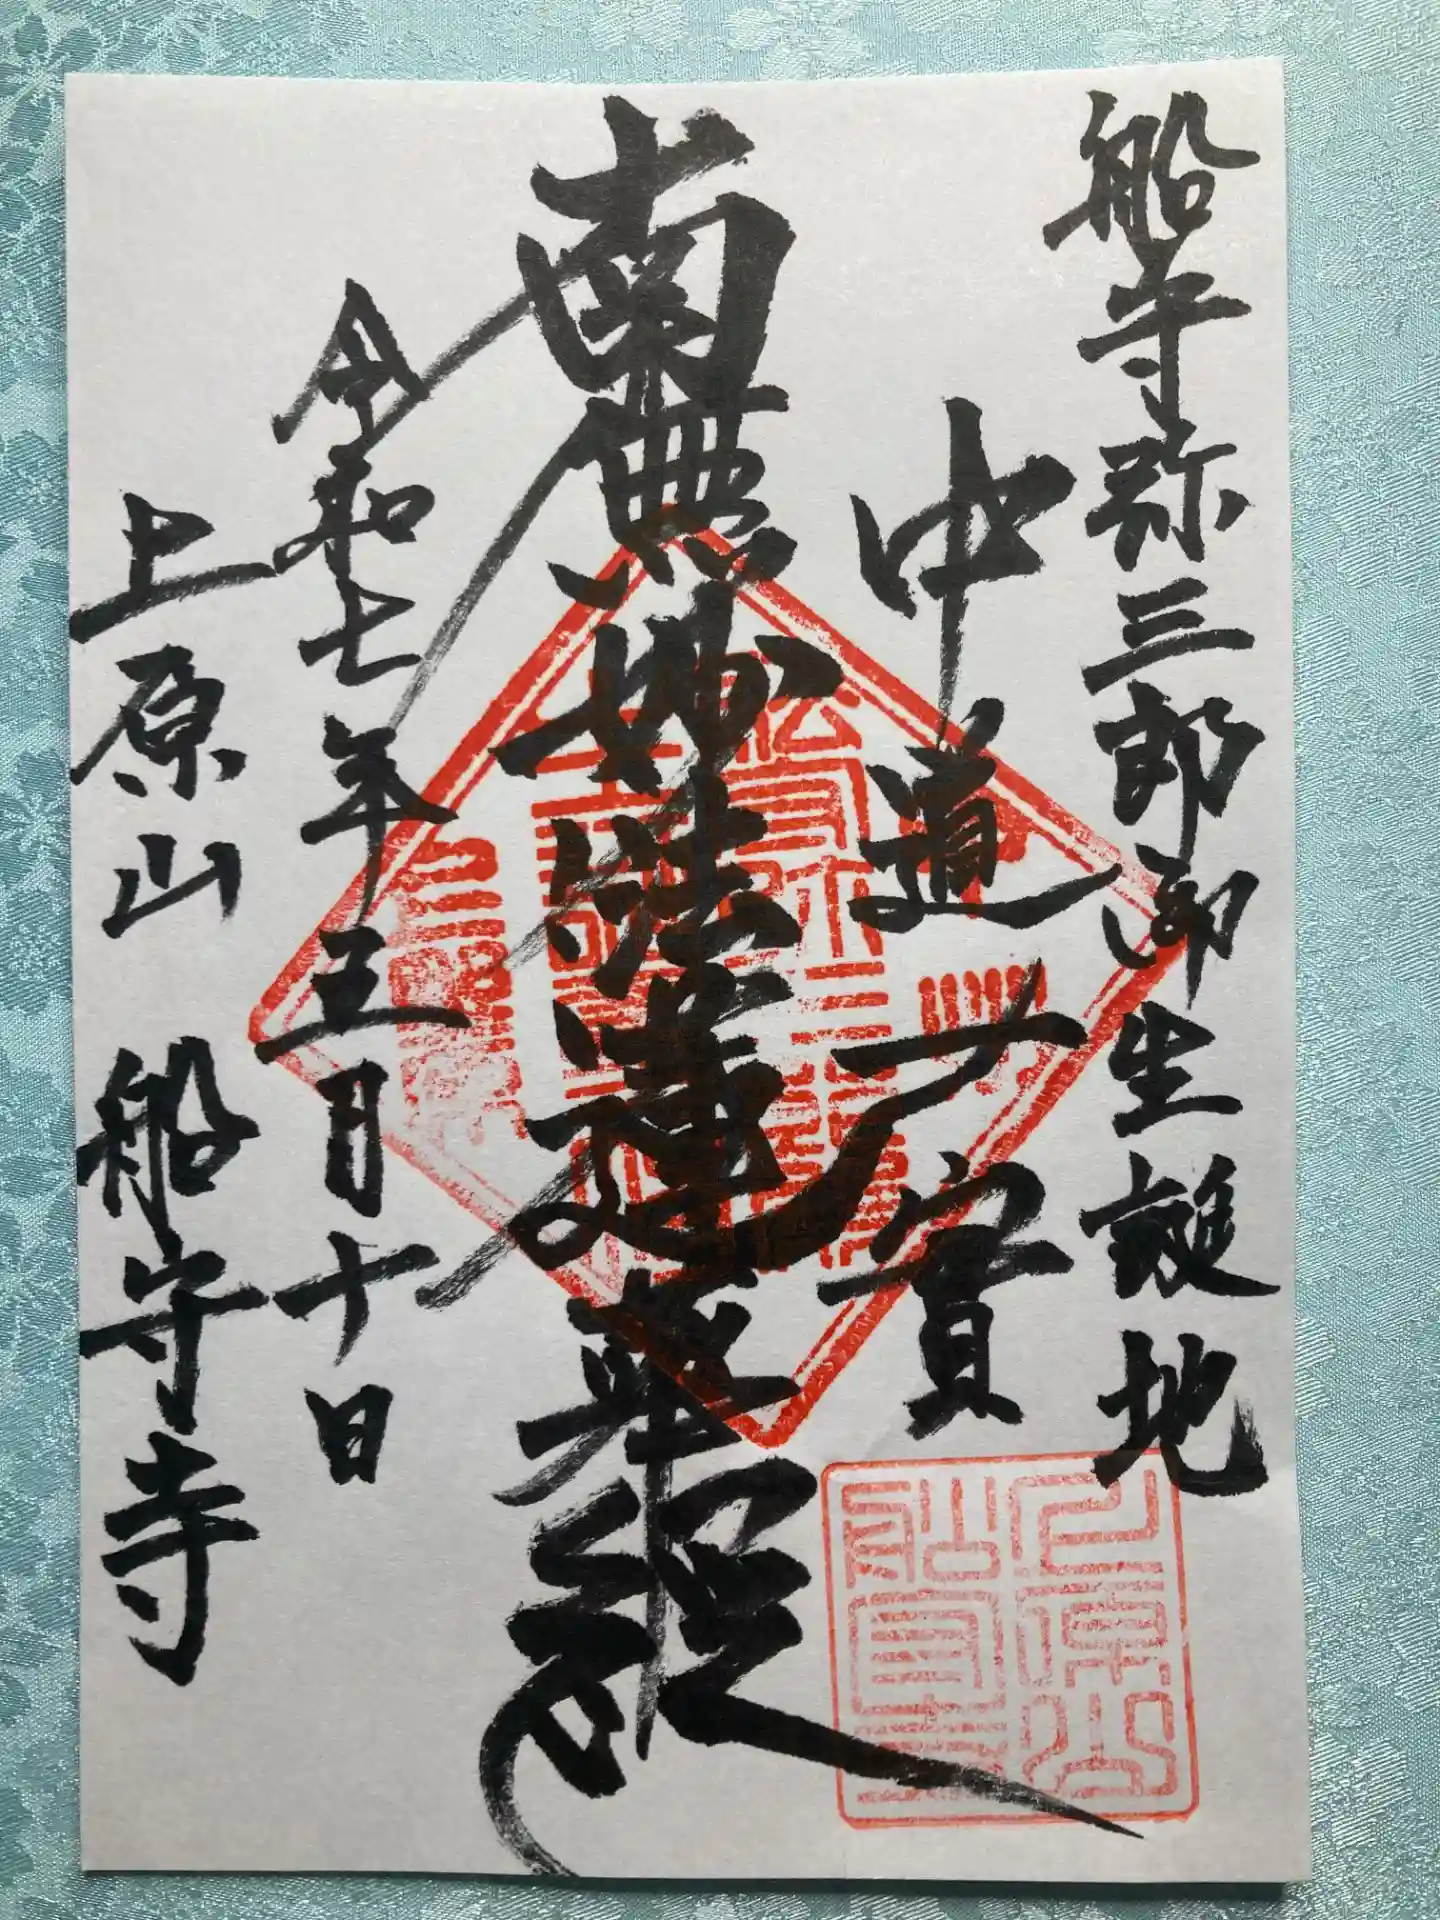 船守弥三郎御生誕地
中道一実
南無妙法蓮華経
令和七年三月十日
上原山 船守寺